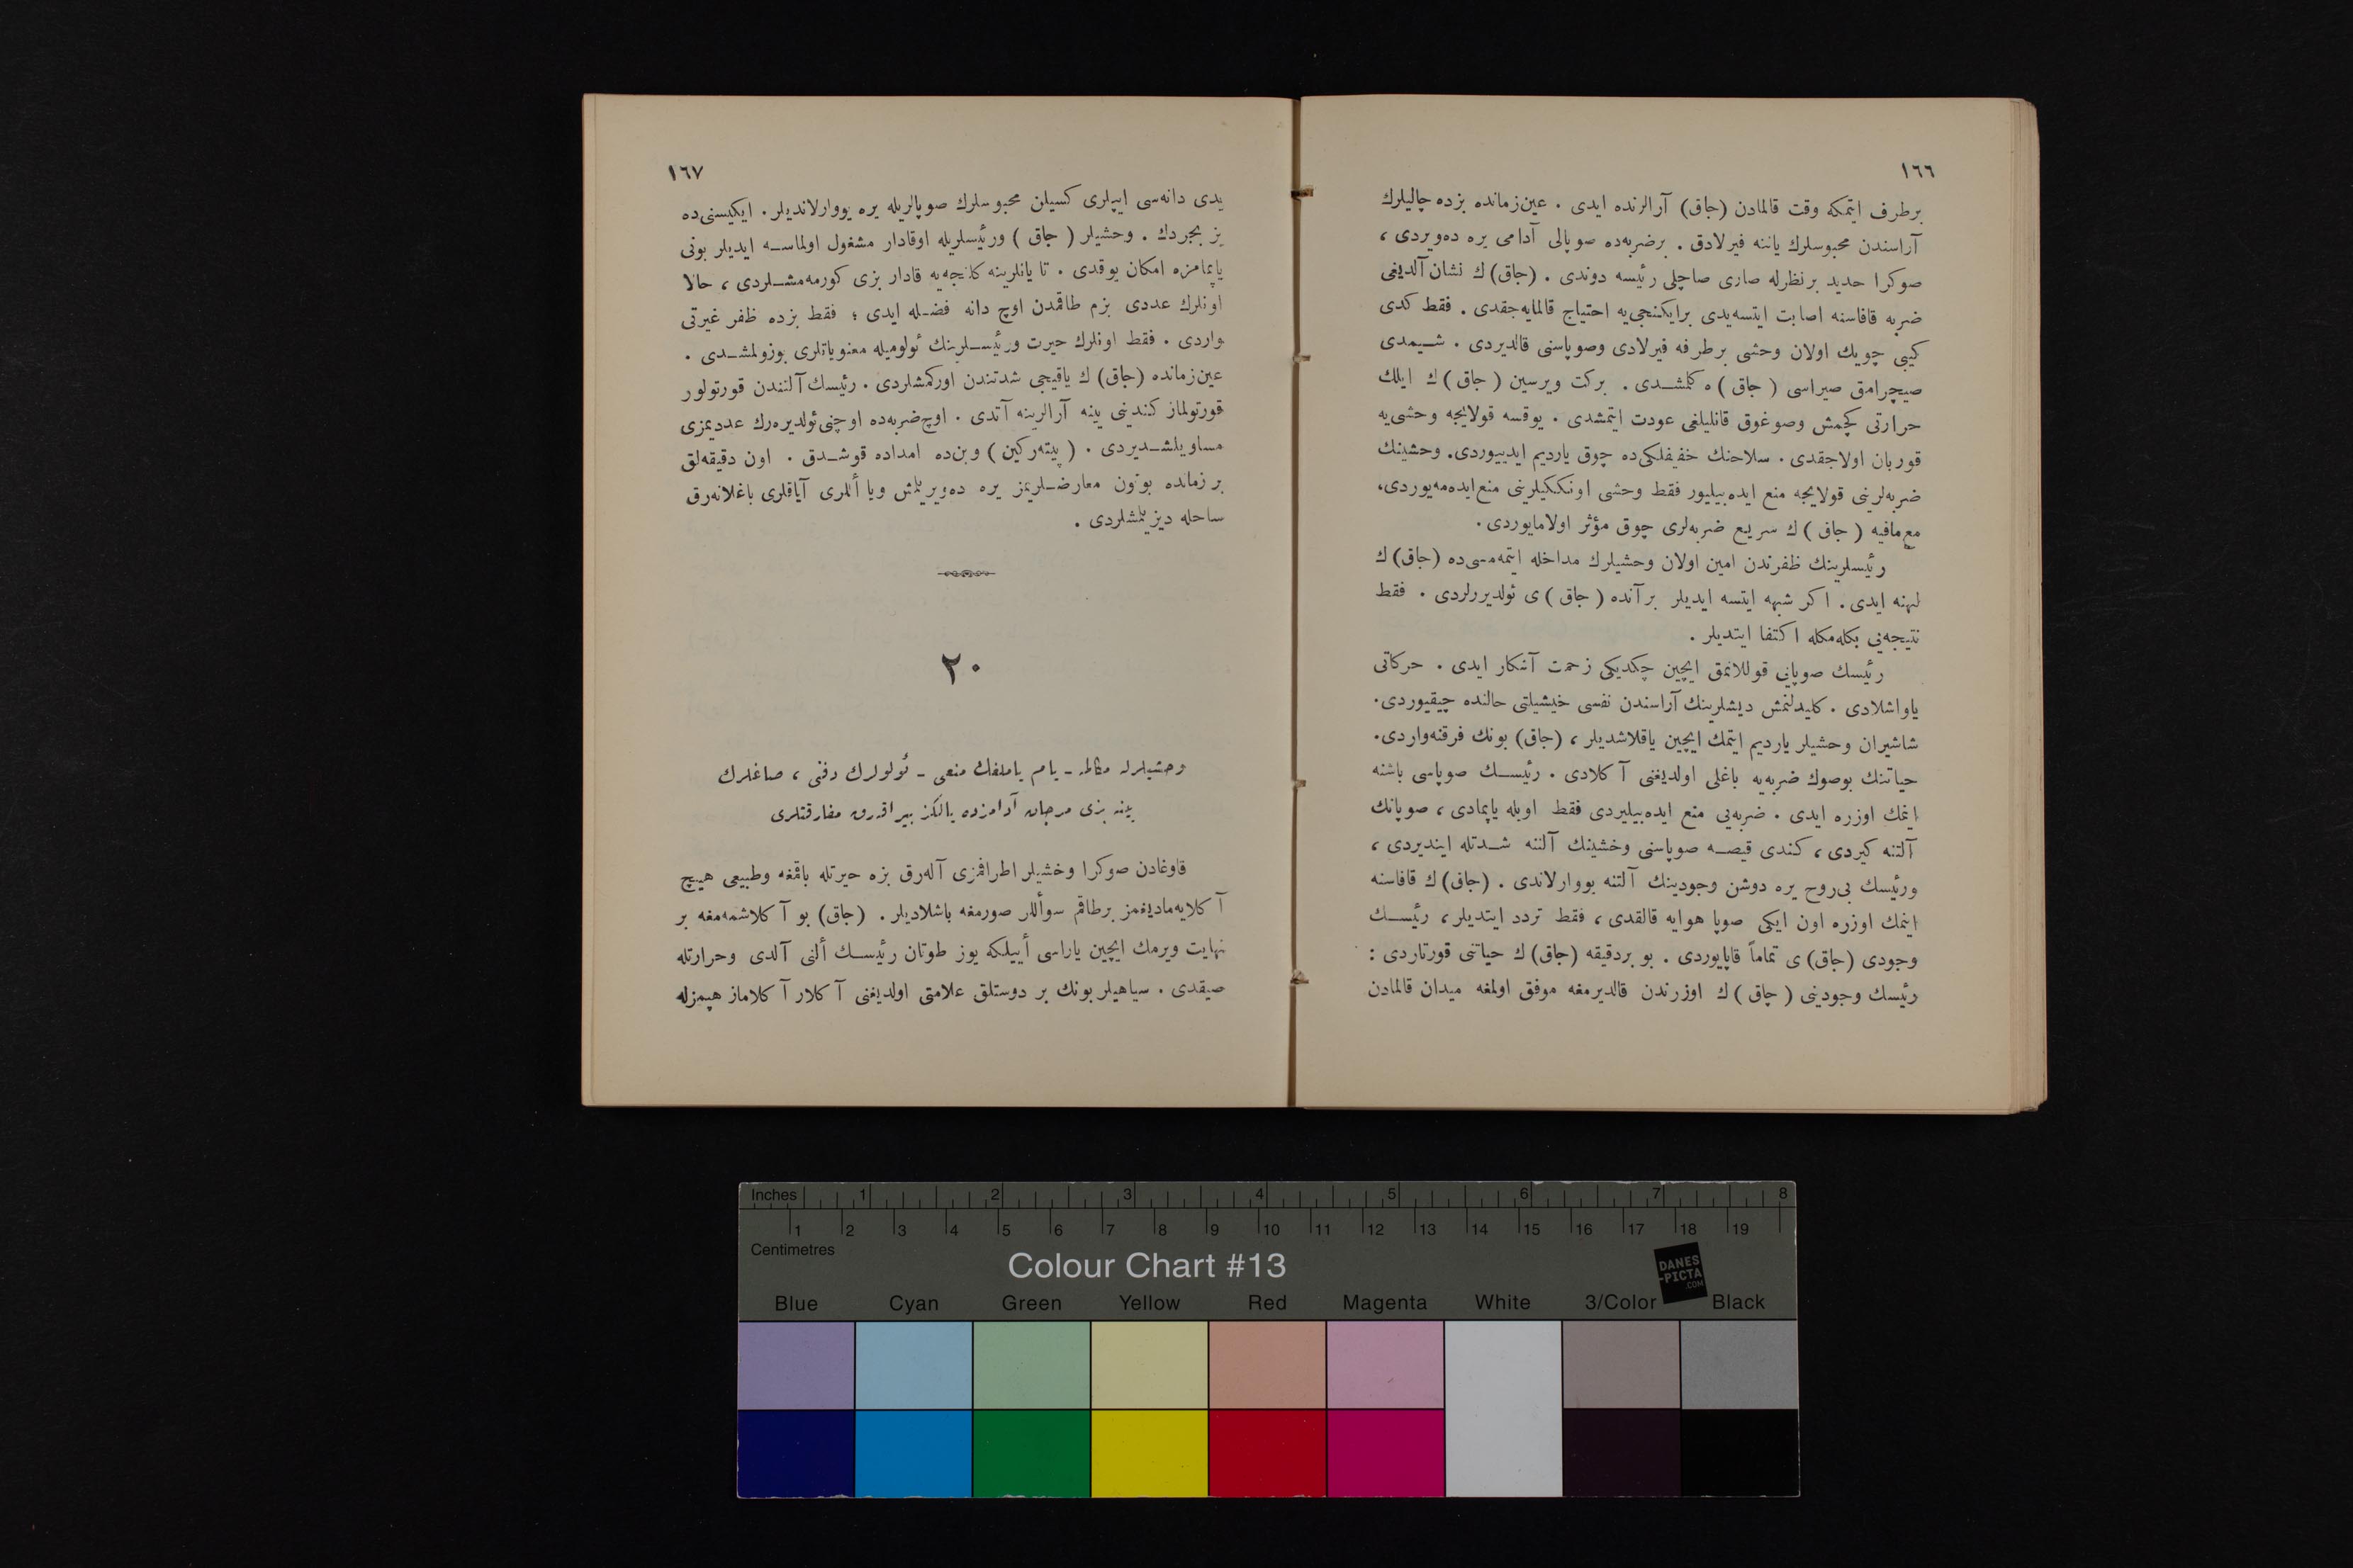 ١٦٦
برطرف ایتمكه وقت قالمادن (جاق) آرالرنده ایدی . عین‌زمانده بزده چالیلرك
آراسندن محبوسلرك یاننه فیرلادق . برضربه‌ده صوپالی آدامی یره ده‌ویردی ،
صوكرا حدید برنظرله صاری صاچلی رئیسه دوندی . (جاق)ك نشان آلدیغی
ضربه قافاسنه اصابت ایتسه‌یدی برایكنجی‌یه احتیاج قالمایه‌جقدی . فقط كدی
كیبی چویك اولان وحشی برطرفه فیرلادی وصوپاسنی قالدیردی . شیمدی
صیچرامق صیراسی ( جاق )ه كلمشدی . بركت ویرسین ( جاق )ك ایلك
حرارتی كچمش وصوغوق قانلیلغی عودت ایتمشدی . یوقسه قولایجه وحشی‌یه
قوربان اولاجقدی . سلاحنك خفیفلكی‌ده چوق یاردیم ایدییوردی. وحشینك
ضربه‌لرینی قولایجه منع ایده‌بیلیور فقط وحشی اونككیلرینی منع ایده‌مه‌یوردی،
مع‌مافیه ( جاق )ك سریع ضربه‌لری چوق مؤثر اولامایوردی.
رئیسلرینك ظفرندن امین اولان وحشیلرك مداخله ایتمه‌مسی‌ده (جاق)ك
لهنه ایدی. اكر شبهه ایتسه ایدیلر برآنده ( جاق )ی ئولدیررلردی . فقط
نتیجه‌یی بكله‌مكله اكتفا ایتدیلر .
رئیسك صوپایی قوللانمق ایچین چكدیكی زحمت آشكار ایدی . حركاتی
یاواشلادی . كلیدلنمش دیشلرینك آراسندن نفسی خیشیلتی حالنده چیقیوردی.
شاشیران وحشیلر یاردیم ایتمك ایچین یاقلاشدیلر ، (جاق) بونك فرقنه‌واردی.
حیاتنك بوصوك ضربه‌یه باغلی اولدیغنی آكلادی . رئیسك صوپاسی باشنه
اینمك اوزره ایدی . ضربه‌یی منع ایده‌بیلیردی فقط اویله یاپمادی ، صوپانك
آلتنه كیردی ، كندی قیصه صوپاسنی وخشینك آلننه شدتله ایندیردی ،
ورئیسك بی‌روح یره دوشن وجودینك آلتنه یووارلاندی . (جاق)ك قافاسنه
اینمك اوزره اون ایكی صوپا هوایه قالقدی ، فقط تردد ایتدیلر ، رئیسك
وجودی (جاق)ی تماماً قاپایوردی . بو بردقیقه (جاق)ك حیاتنی قورتاردی :
رئیسك وجودینی ( چاق )ك اوزرندن قالدیرمغه موفق اولمغه میدان قالمادن
١٦٧
یدی دانه‌سی ایپلری كسیلن محبوسلرك صوپالریله یره یووارلاندیلر. ایكیسنی‌ده
بز بجردك . وحشیلر ( جاق ) ورئیسلریله اوقادار مشغول اولماسه ایدیلر بونی
یاپمامزه امكان یوقدی . تا یانلرینه كلنجه‌یه قادار بزی كورمه‌مشلردی ، حالا
اونلرك عددی بزم طاقمدن اوچ دانه فضله ایدی ؛ فقط بزده ظفر غیرتی
واردی . فقط اونلرك حیرت ورئیسلرینك ئولومیله معنویاتلری بوزولمشدی .
عین‌زمانده (جاق)ك یاقیجی شدتندن اوركمشلردی . رئیسك آلتندن قورتولور
قورتولماز كندینی ینه آرالرینه آتدی . اوچ‌ضربه‌ده اوچنی ئولدیره‌رك عددیمزی
مساویلشدیردی . ( پیته‌ركین ) وبن‌ده امداده قوشدق . اون دقیقه‌لق
برزمانده بوتون معارضلریمز یره ده‌ویریلمش ویا أللری آیاقلری باغلانه‌رق
ساحله دیزیلمشلردی .
٢٠
وحشیلرله مكالمه ـ یام یاملغك منعی ـ ئولولرك دفنی ، صاغلرك
ینه بزی مرجان آدامزده یالكز بیراقه‌رق مفارقتلری
قاوغادن صوكرا وخشیلر اطرافمزی آله‌رق بزه حیرتله باقمغه وطبیعی هیچ
آكلایه‌مادیغمز برطاقم سوأللر صورمغه باشلادیلر . (جاق) بو آكلاشمه‌مغه بر
نهایت ویرمك ایچین یاراسی أییلكه یوز طوتان رئیسك ألنی آلدی وحرارتله
صیقدی . سیاهیلر بونك بر دوستلق علامتی اولدیغنی آكلار آكلاماز هپمزله
Inches 1 2 3 4 5 6 7 8
1 2 3 4 5 6 7 8 9 10 11 12 13 14 15 16 17 18 19
Centimetres
Colour Chart #13
DANES
-PICTA
.COM
Blue Cyan Green Yellow Red Magenta White 3/Color Black